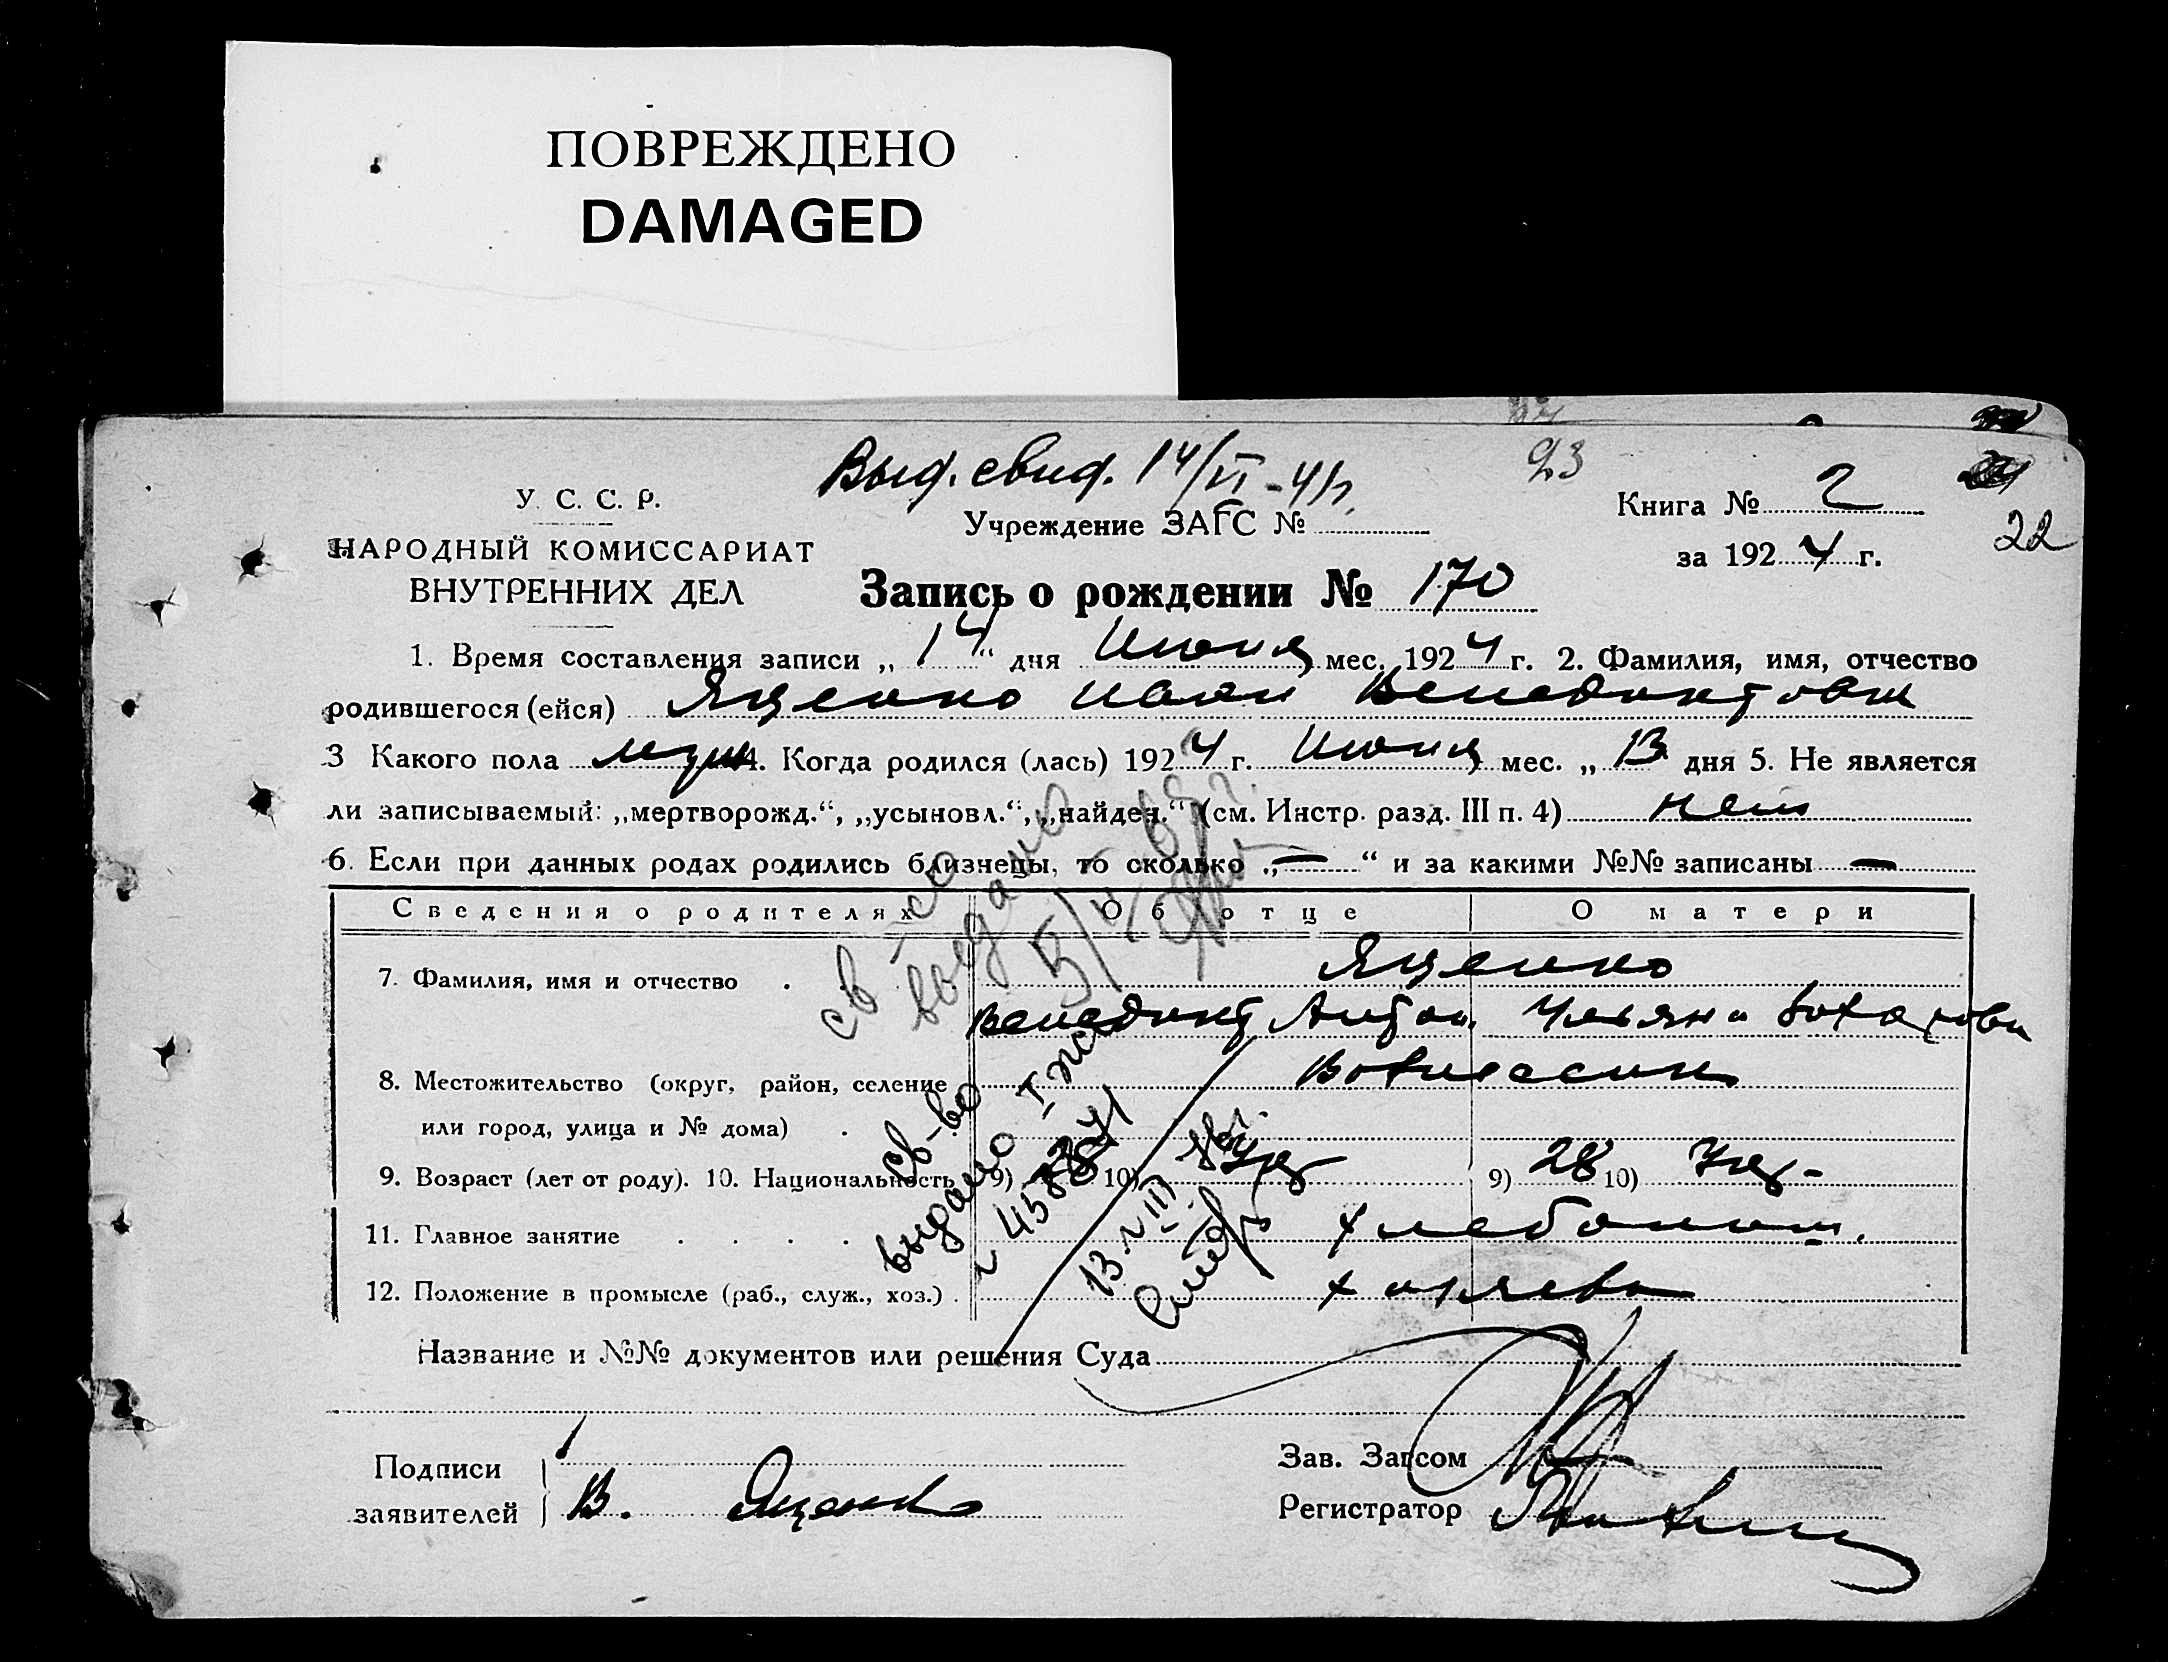 ПОВРЕЖДЕНО
DAMAGED
Выд. свид. 14/VI-41г.
93
У. С. С. Р.
НАРОДНЫЙ КОМИССАРИАТ
ВНУТРЕННИХ ДЕЛ
Учреждение ЗАГС №
Книга № 2
за 1924 г.
22
Запись о рождении № 170
1. Время составления записи „ 14 “ дня Июня мес. 1924 г. 2. Фамилия, имя, отчество
родившегося (ейся) Яценко Иван Венедиктович
3 Какого пола муж 4. Когда родился (лась) 1924 г. Июня мес. „ 13 дня 5. Не является
ли записываемый: „мертворожд.“, „усыновл.“, „найден.“ (см. Инстр. разд. III п. 4) нет
6. Если при данных родах родились близнецы, то сколько „ — “ и за какими №№ записаны —
Сведения о родителях Об отце О матери
7. Фамилия, имя и отчество . Яценко
Венедикт Антон. Ульяна
8. Местожительство (округ, район, селение
или город, улица и № дома) .
9. Возраст (лет от роду). 10. Национальность 9) 28 10) Укр 9) 28 10) Укр-
11. Главное занятие . . . . хлебопаш.
12. Положение в промысле (раб., служ., хоз.) . хозяева
св-во
выдано
св-во
выдано
Название и №№ документов или решения Суда
Подписи
заявителей
В. Яценко
Зав. Загсом
Регистратор